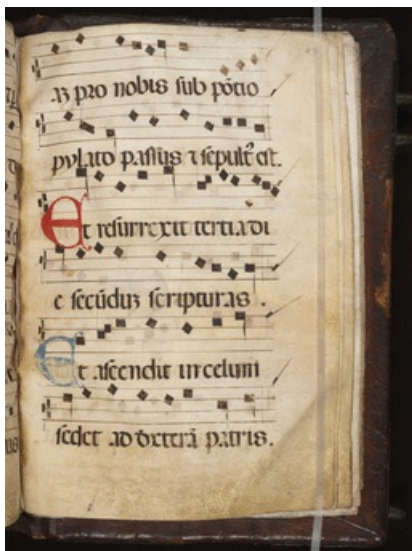 pro nobis sub pōtio
pylato passus ⁊ sepult᷒ est.
Et resurrexit tertia di
e secūduz scripturas .
Et ascendit in celum
sedet ad dexterā patris.